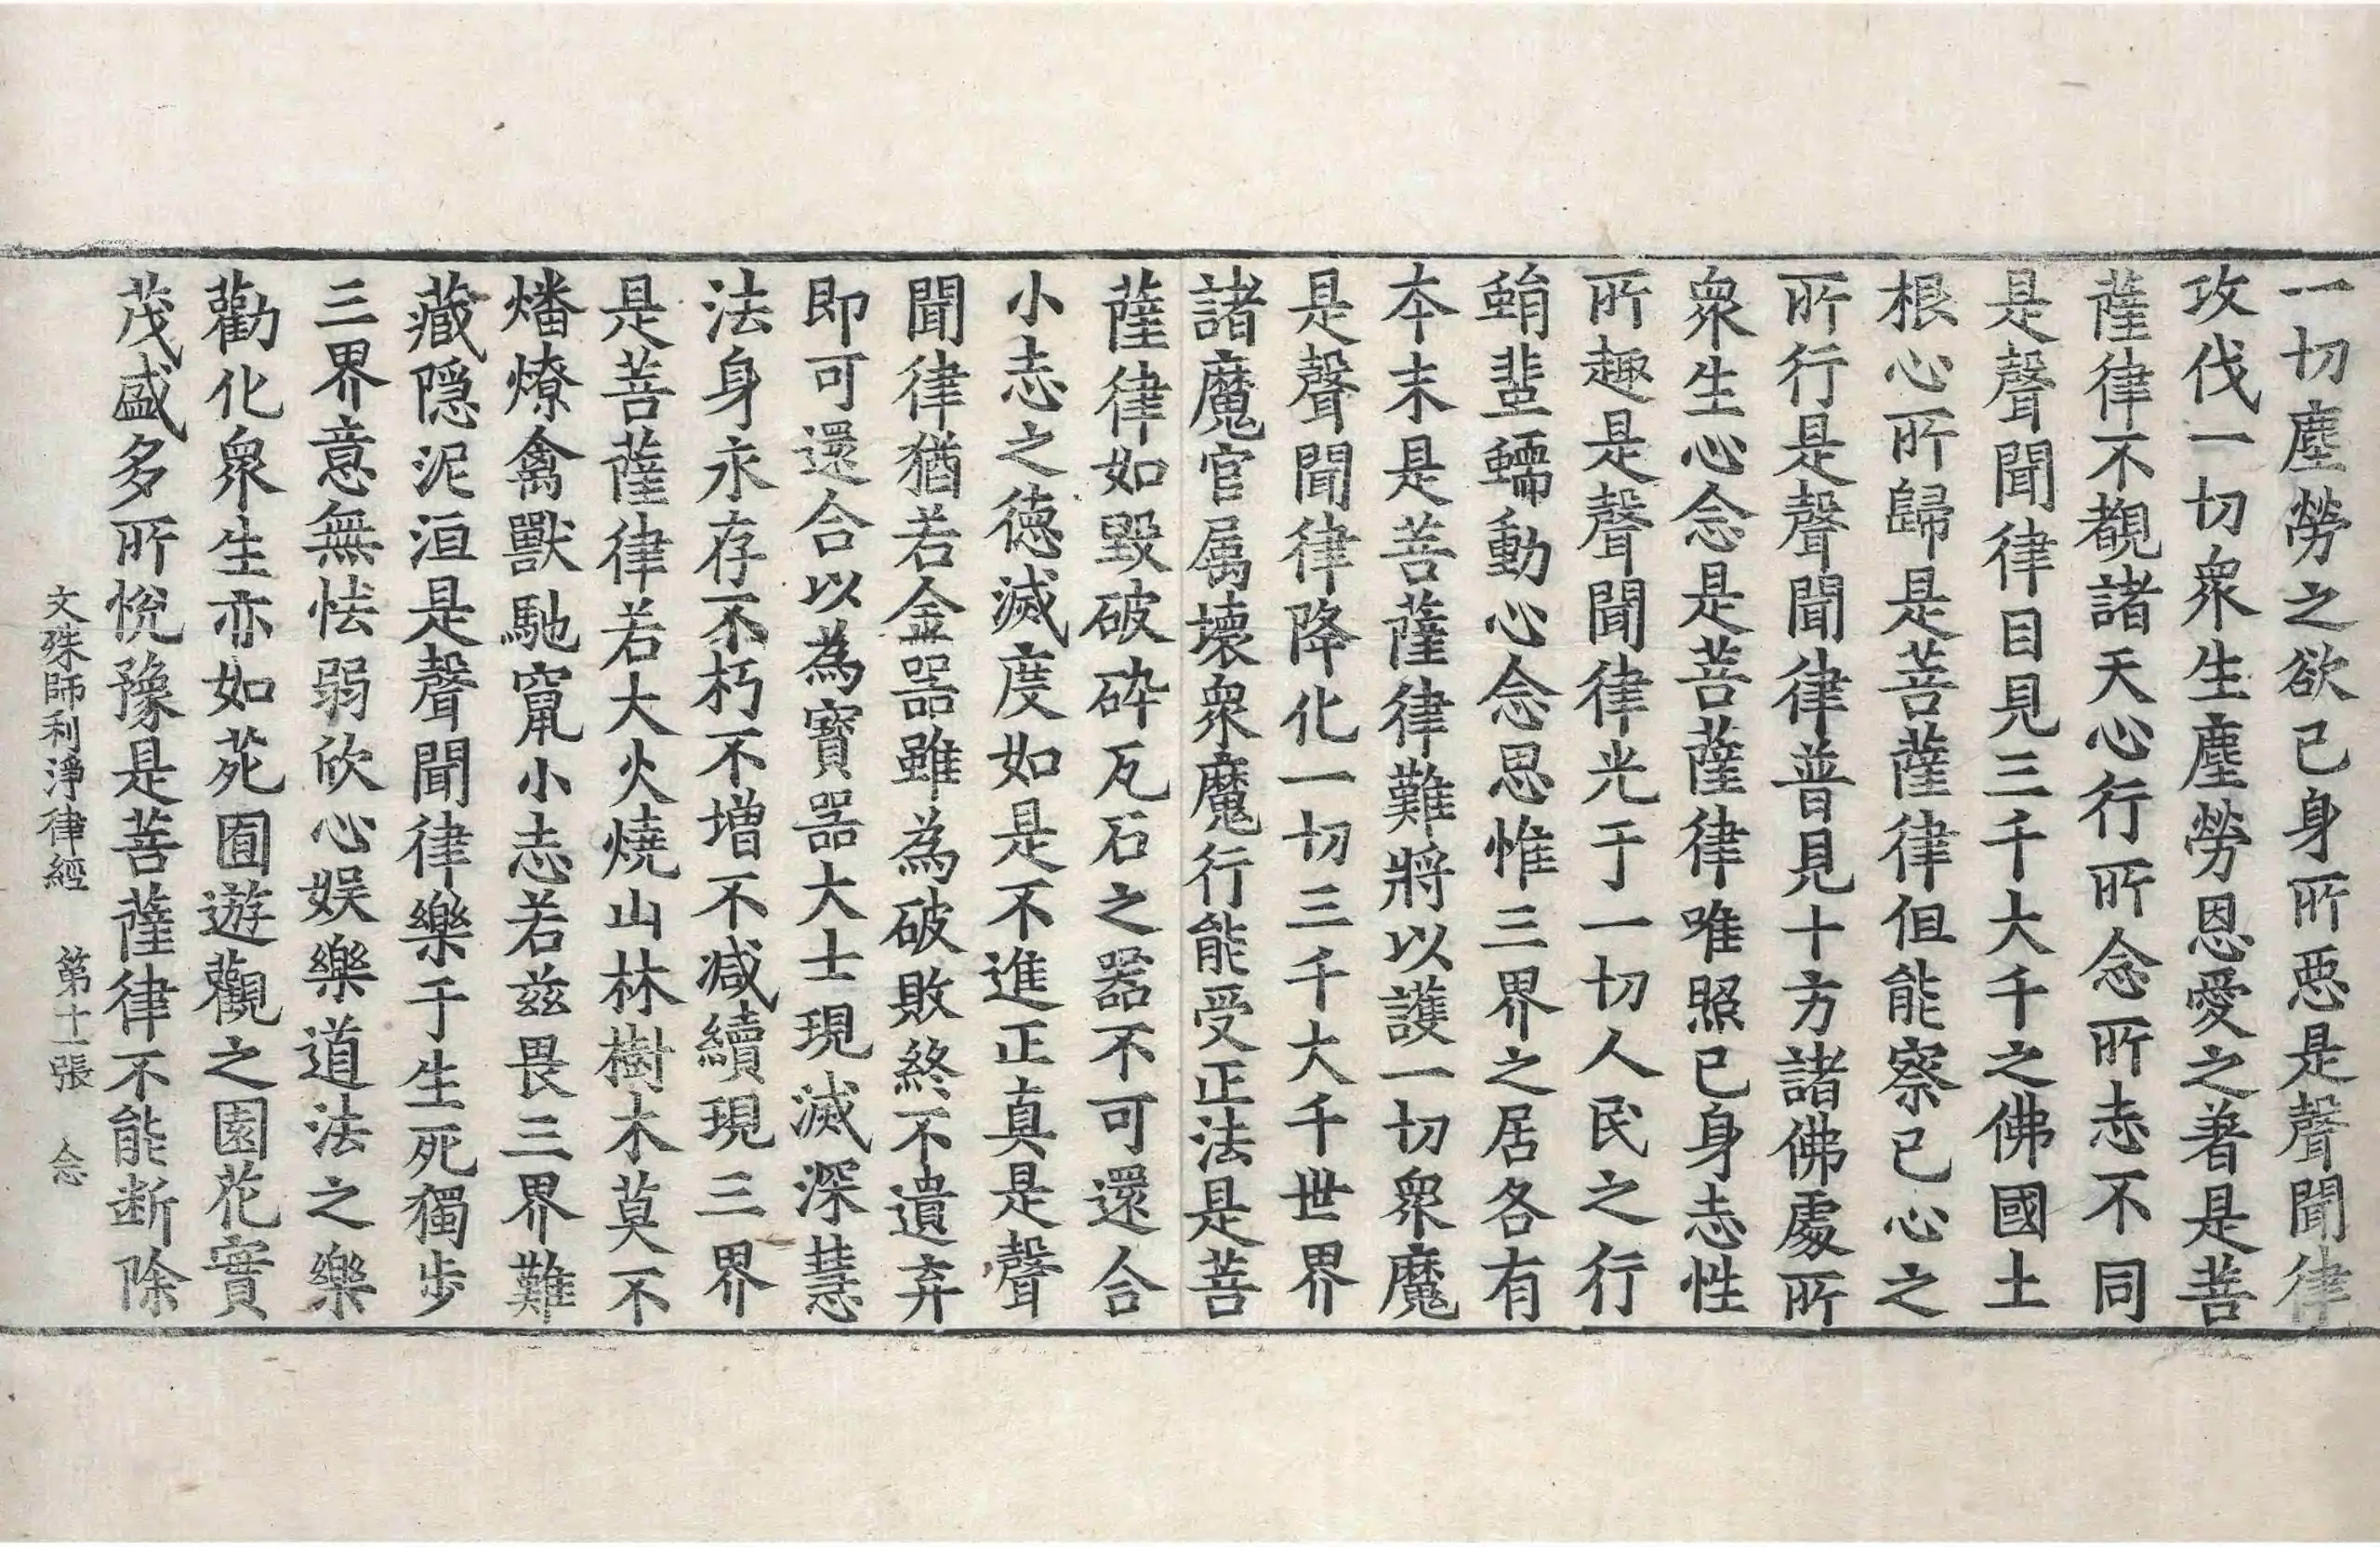 一切塵勞之欲己身所惡是聲聞律
攻伐一切衆生塵勞恩愛之著是菩
薩律不覩諸天心行所念所志不同
是聲聞律目見三千大千之佛國土
根心所歸是菩薩律但能察己心之
所行是聲聞律普見十方諸佛處所
衆生心念是菩薩律唯照己身志性
所趣是聲聞律光于一切人民之行
蜎蜚蠕動心念思惟三界之居各有
本末是菩薩律難將以護一切衆魔
是聲聞律降化一切三千大千世界
諸魔官属壞衆魔行能受正法是菩
薩律如毀破碎瓦石之器不可還合
小志之德滅度如是不進正真是聲
聞律猶若金器雖為破敗終不遺弃
即可還合以為寶器大士現滅深慧
法身永存不朽不增不減續現三界
是菩薩律若大火燒山林樹木莫不
燔燎禽獸馳竄小志若兹畏三界難
藏隱泥洹是聲聞律樂于生死獨步
三界意無怯弱欣心娱樂道法之樂
勸化衆生亦如苑囿遊觀之園花實
茂盛多所悅豫是菩薩律不能断除
文殊師利淨律經　第十一張　念